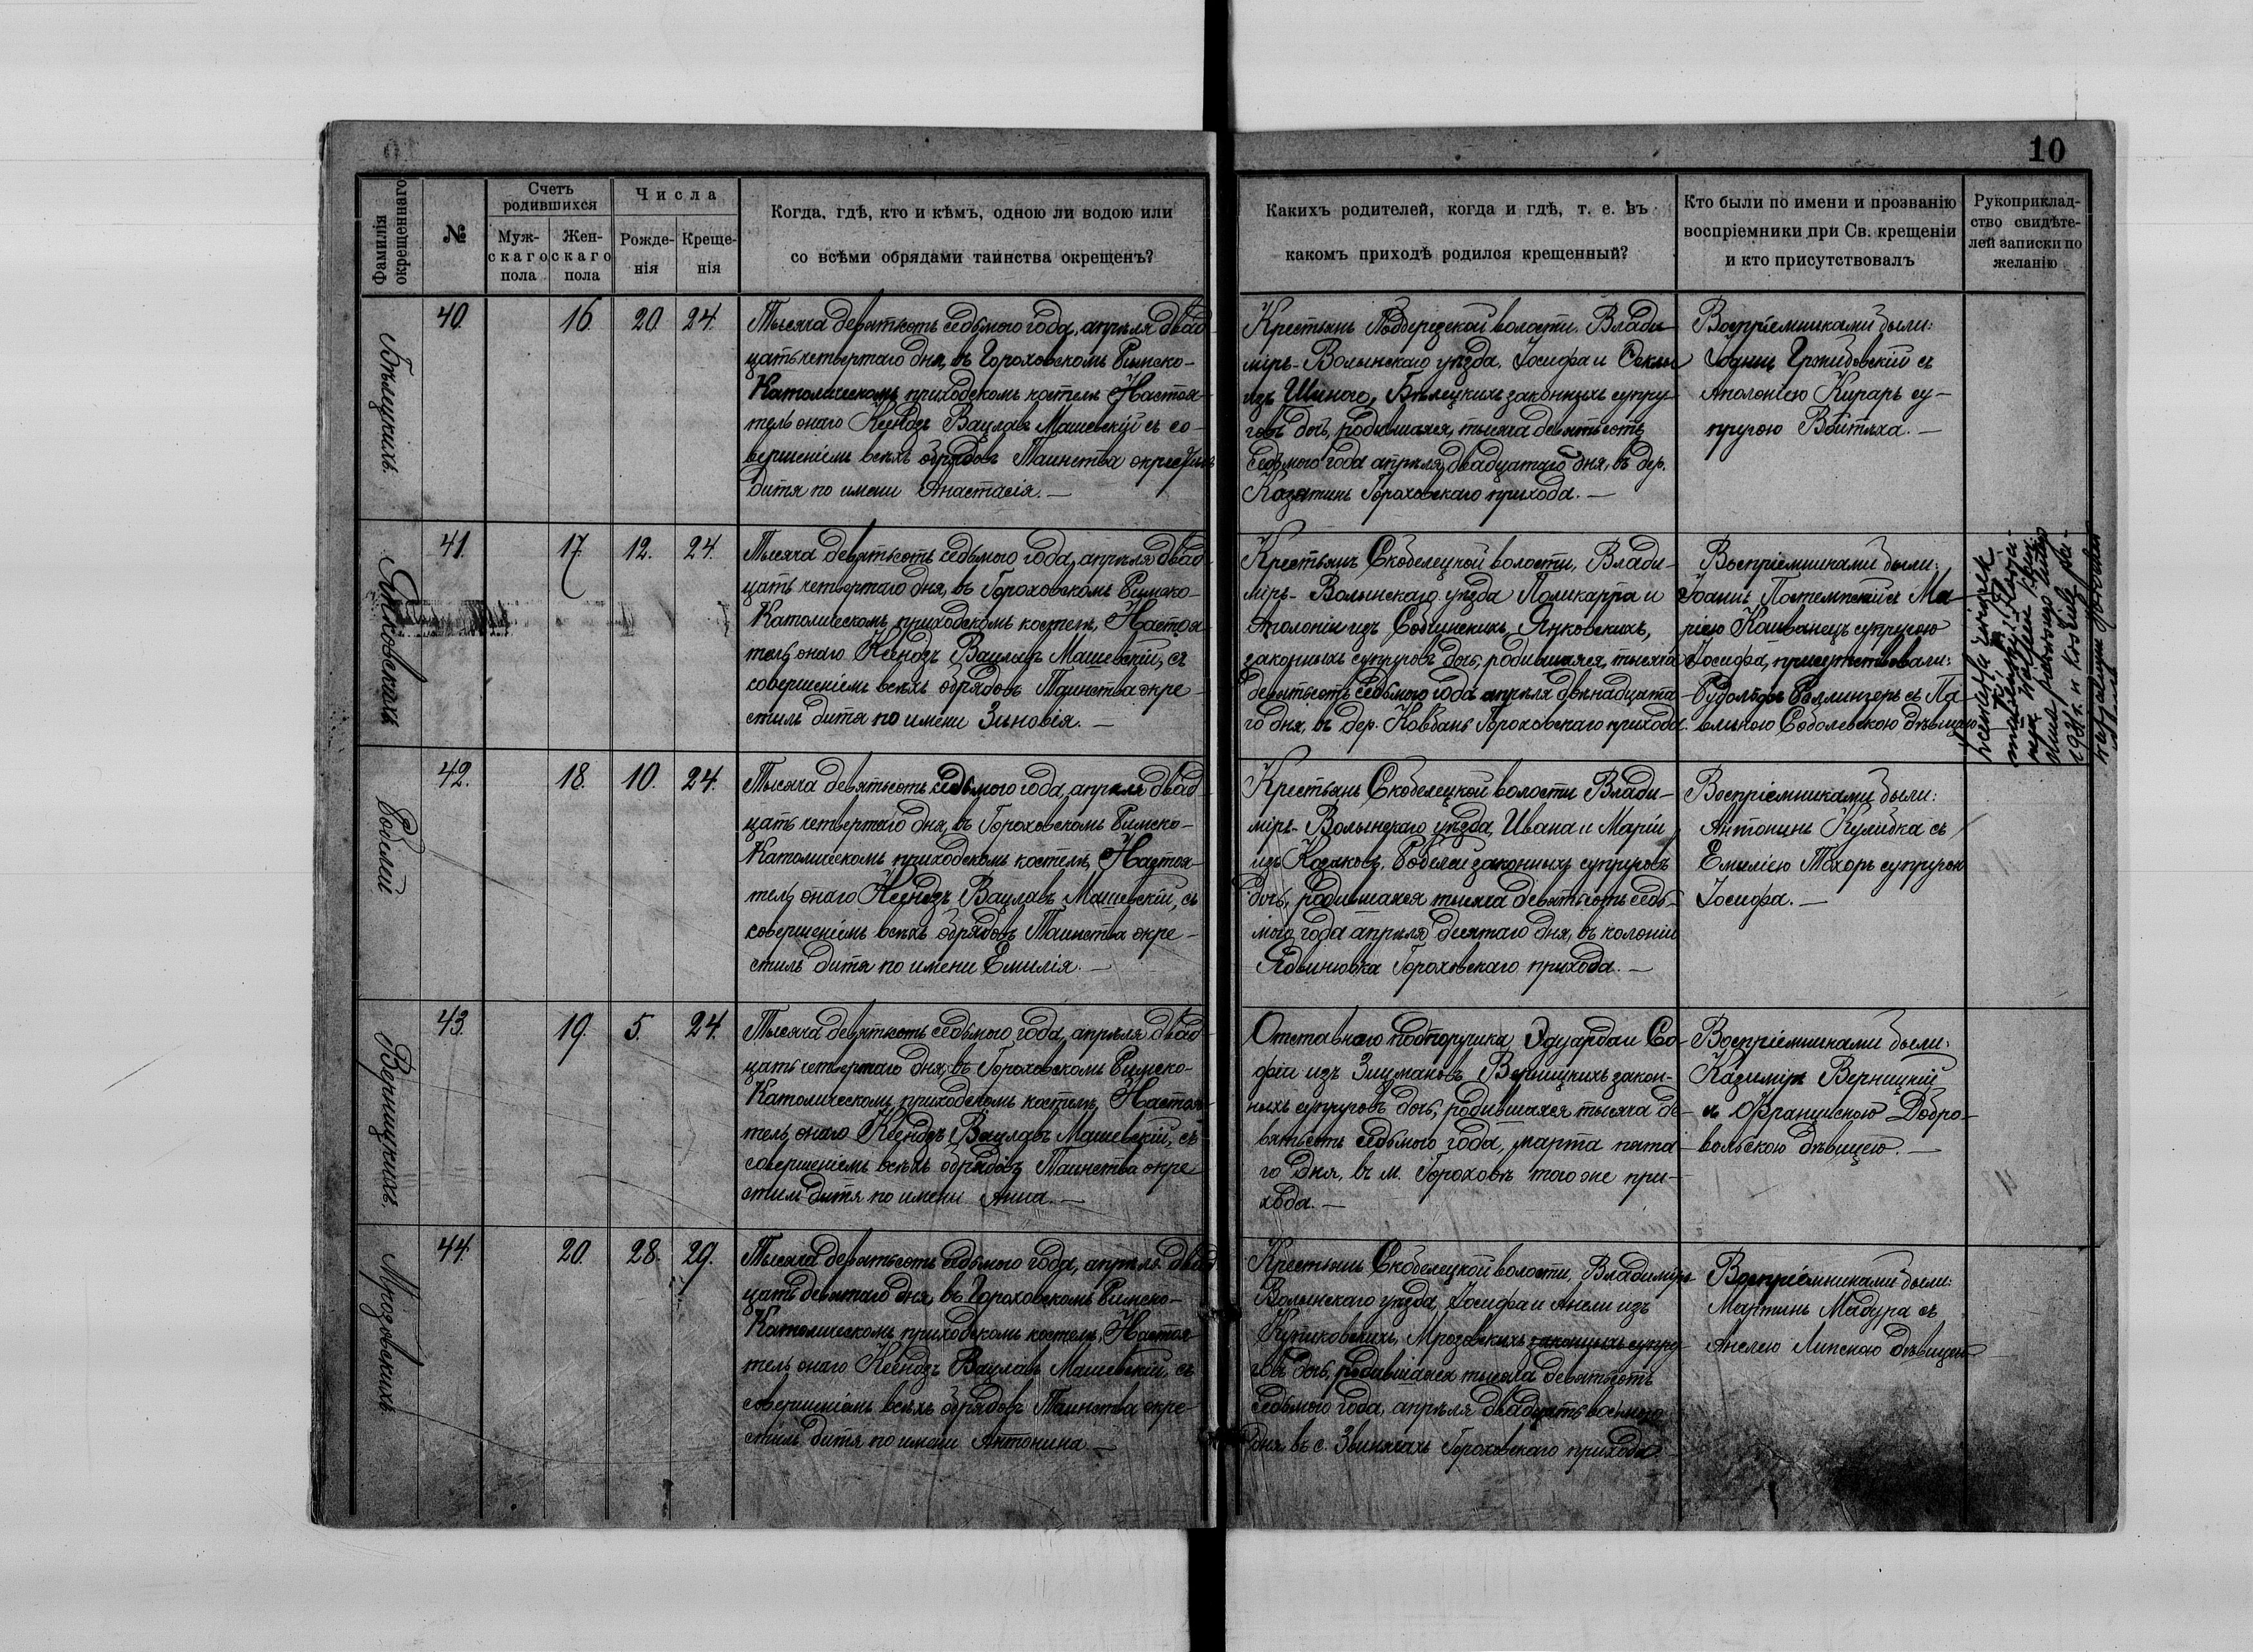 10
Фамилія окрещеннаго
№
Счетъ родившихся
Муж-скаго пола
Жен-скаго пола
Числа
Рожде-нія
Креще-нія
Когда, гдѣ, кто и кѣмъ, одною ли водою или
со всѣми обрядами таинства окрещенъ?
Какихъ родителей, когда и гдѣ, т. е. въ
какомъ приходѣ родился крещенный?
Кто были по имени и прозванію
воспріемники при Св. крещеніи
и кто присутствовалъ
Рукоприклад-
ство свидѣте-
лей записки по
желанію
Бѣлецкихъ.
40.
16.
20.
24.
Тысяча девятьсотъ седьмого года, апрѣля двад-
цать четвертаго дня, въ Гороховскомъ Римско-
Католическомъ приходскомъ костелѣ Настоя-
тель онаго Ксендзъ Вацлавъ Машевскій съ со-
вершеніемъ всѣхъ обрядовъ Таинства окрестилъ
дитя по имени Анастасія. —
Крестьянъ Подберезской волости, Влади-
міръ-Волынскаго уѣзда, Іосифа и Ѳеклы
изъ Бѣлецкихъ законныхъ супру-
говъ дочь, родившаяся, тысяча девятьсотъ
седьмого года апрѣля двадцатаго дня, въ дер.
Козятинѣ Гороховскаго прихода. —
Воспріемниками были:
Іоаннъ Гржибовскій съ
Аполоніею Кирарь су-
пругою Войтѣха. —
Янковскихъ
41.
17.
12.
24.
Тысяча девятьсотъ седьмого года, апрѣля двад-
цать четвертаго дня, въ Гороховскомъ Римско-
Католическомъ приходскомъ костелѣ, Настоя-
тель онаго Ксендзъ Вацлавъ Машевскій, съ
совершеніемъ всѣхъ обрядовъ Таинства окре-
стилъ дитя по имени Зыновія. —
Крестьянъ Скобелецкой волости, Влади-
міръ-Волынскаго уѣзда Поликарпа и
Аполоніи изъ Собчинскихъ, Янковскихъ,
законныхъ супруговъ дочь, родившаяся, тысяча
девятьсотъ седьмого года апрѣля двѣнадцата-
го дня, въ дер. Ковбань Гороховскаго прихода.
Воспріемниками были:
Іоаннъ Постемпскій съ Ма-
ріею Кашванецъ супругою
Іосифа, присутствовали:
Рудольфъ Роллингеръ съ Па-
влиною Соболевскою дѣвицею
Робелей
42.
18.
10.
24.
Тысяча девятьсотъ седьмого года, апрѣля двад-
цать четвертаго дня, въ Гороховскомъ Римско-
Католическомъ приходскомъ костелѣ, Настоя-
тель онаго Ксендзъ Вацлавъ Машевскій, съ
совершеніемъ всѣхъ обрядовъ Таинства окре-
стилъ дитя по имени Емилія. —
Крестьянъ Скобелецкой волости Влади-
міръ-Волынскаго уѣзда, Ивана и Маріи
изъ Козаковъ, Робелей законныхъ супруговъ
дочь, родившаяся тысяча девятьсотъ седь-
мого года апрѣля десятаго дня, въ колоніи
Ядвиновка Гороховскаго прихода. —
Воспріемниками были:
Антонинъ Кулибка съ
Емиліею Тохоръ супругою
Іосифа. —
Верницкихъ.
43.
19.
5.
24.
Тысяча девятьсотъ седьмого года, апрѣля двад-
цать четвертаго дня, въ Гороховскомъ Римско-
Католическомъ приходскомъ костелѣ, Настоя-
тель онаго Ксендзъ Вацлавъ Машевскій, съ
совершеніемъ всѣхъ обрядовъ Таинства окре-
стилъ дитя по имени Анна. —
Отставного подпоручика, Эдуарда и Со-
фіи изъ Зицмановъ Верницкихъ закон-
ныхъ супруговъ дочь, родившаяся тысяча де-
вятьсотъ седьмого года, марта пята-
го дня, въ м. Гороховѣ того же при-
хода. —
Воспріемниками были:
Казиміръ Верницкій
съ Францискою Добро-
вольскою дѣвицею. —
Мрозовскихъ
44.
20.
28.
29.
Тысяча девятьсотъ седьмого года, апрѣля двад-
цать девятаго дня, въ Гороховскомъ Римско-
Католическомъ приходскомъ костелѣ, Настоя-
тель онаго Ксендзъ Вацлавъ Машевскій, съ
совершеніемъ всѣхъ обрядовъ Таинства окре-
стилъ дитя по имени Антонина —
Крестьянъ Скобелецкой волости, Владиміръ-
Волынскаго уѣзда, Іосифа и Анели изъ
Купиковскихъ, Мрозовскихъ законныхъ супру-
говъ дочь, родившаяся тысяча девятьсотъ
седьмого года, апрѣля двадцать восьмого
дня въ с. Звинячахъ Гороховскаго прихода. —
Воспріемниками были:
Мартинъ Мадура съ
Анелею Липскою дѣвицею